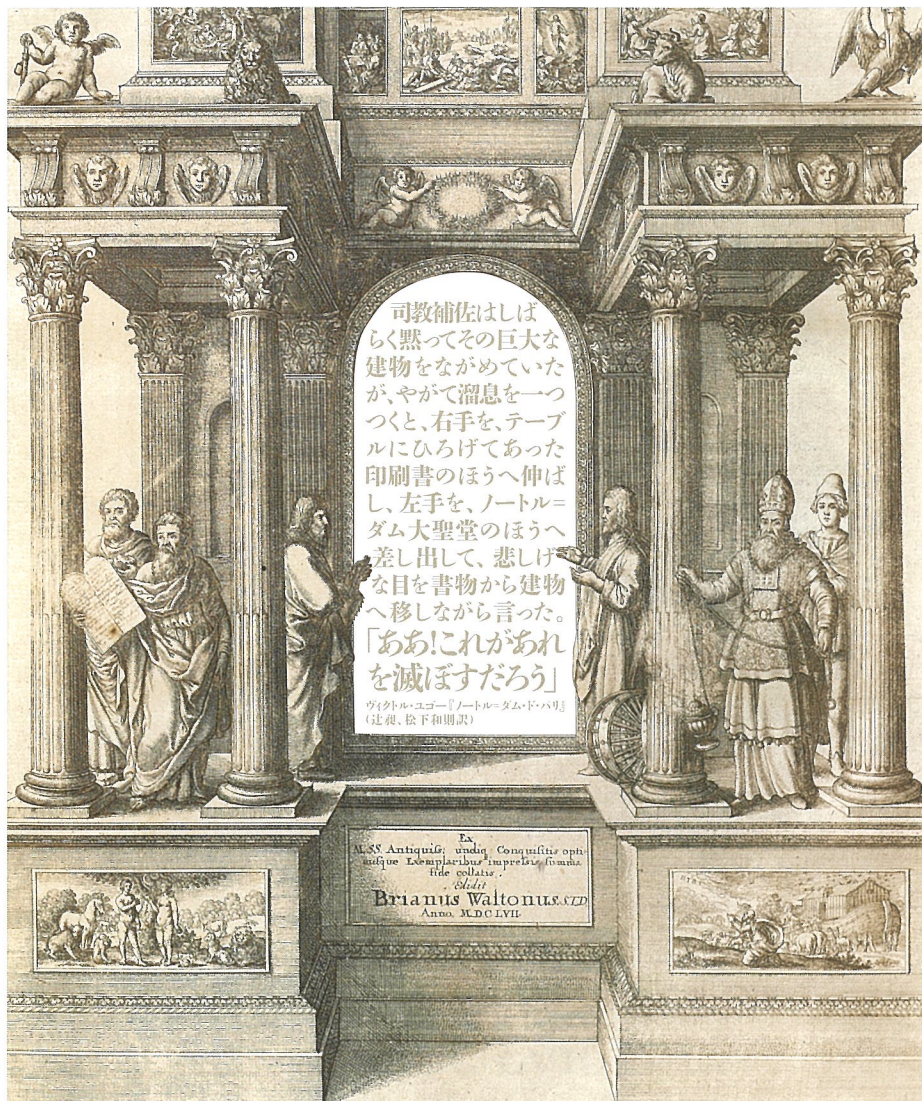 司教補佐はしば
らく黙ってその巨大な
建物をながめていた
が、やがて溜息を一つ
つくと、右手を、テーブ
ルにひろげてあった
印刷書のほうへ伸ば
し、左手を、ノートル=
ダム大聖堂のほうへ
差し出して、悲しげ
な目を書物から建物
へ移しながら言った。
「ああ!これがあれ
を滅ぼすだろう」
ヴィクトル・ユゴー『ノートル=ダム・ド・パリ』
(辻昶、松下和則訳)
Ex
M.SS. Antiquiſs. undiq Conquiſitis opti-
miſque Exemplaribus impreſsis ſumma
fide collatis.
Edidit
Brianus Waltonus. S.T.D
Anno. M.DC.LVII.